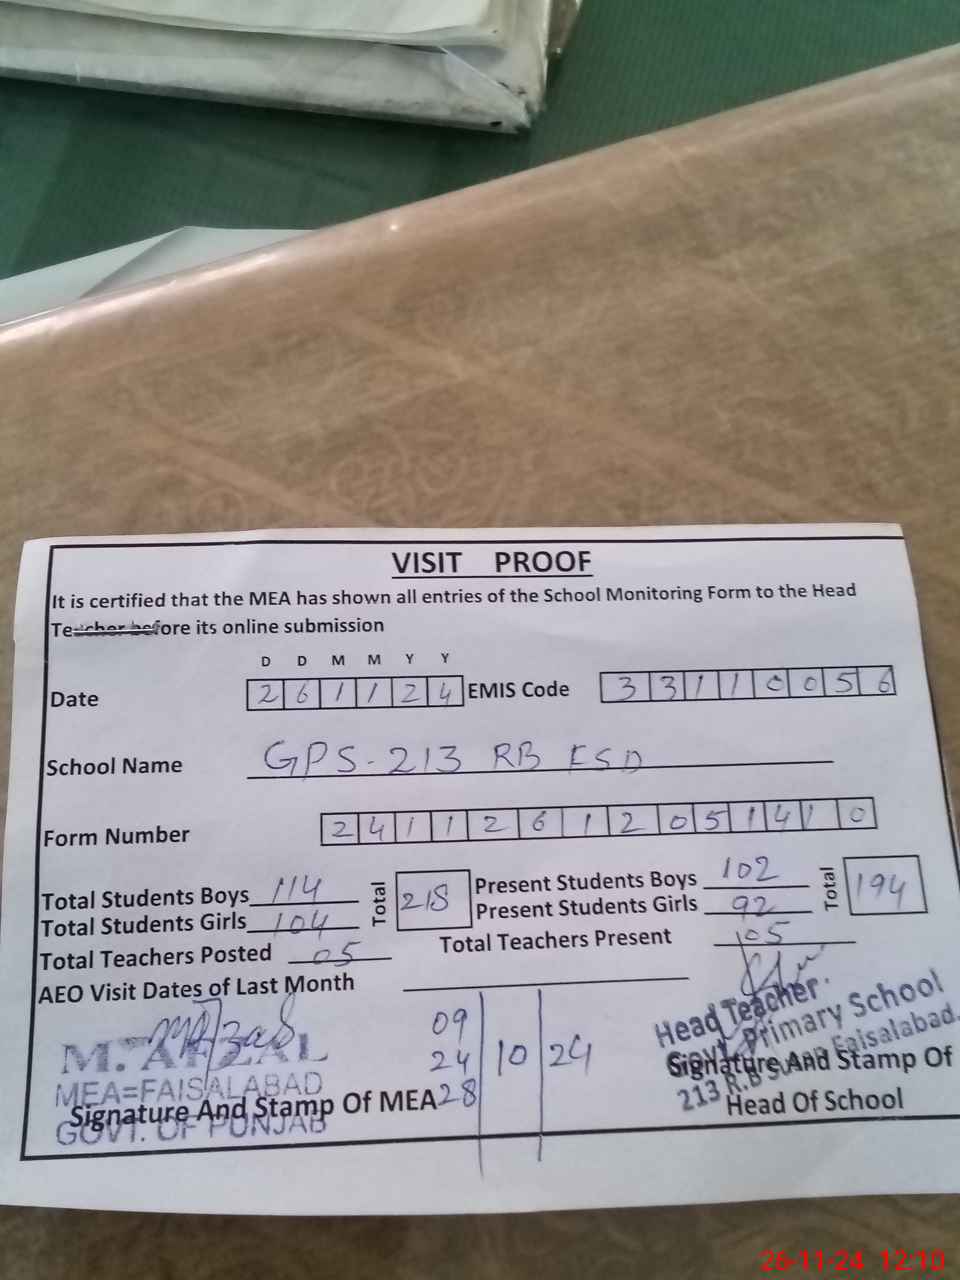 VISIT PROOF
It is certified that the MEA has shown all entries of the School Monitoring Form to the Head
Teacher before its online submission
D D M M Y Y
Date 2 6 1 1 2 4 EMIS Code 3 3 1 1 0 0 5 6
School Name GPS-213 RB FSD
Form Number 2 4 1 1 2 6 1 2 0 5 1 4 1 0
Total Students Boys 114 Total 218 Present Students Boys 102 Total 194
Total Students Girls 104 Present Students Girls 92
Total Teachers Posted 05 Total Teachers Present 05
AEO Visit Dates of Last Month
09
24 10 24
28
M. AFZAL
MEA=FAISALABAD
Signature And Stamp Of MEA
GOVT. OF PUNJAB
Head Teacher
Govt. Primary School
213 R.B Faisalabad.
Signature And Stamp Of
Head Of School
26-11-24 12:10